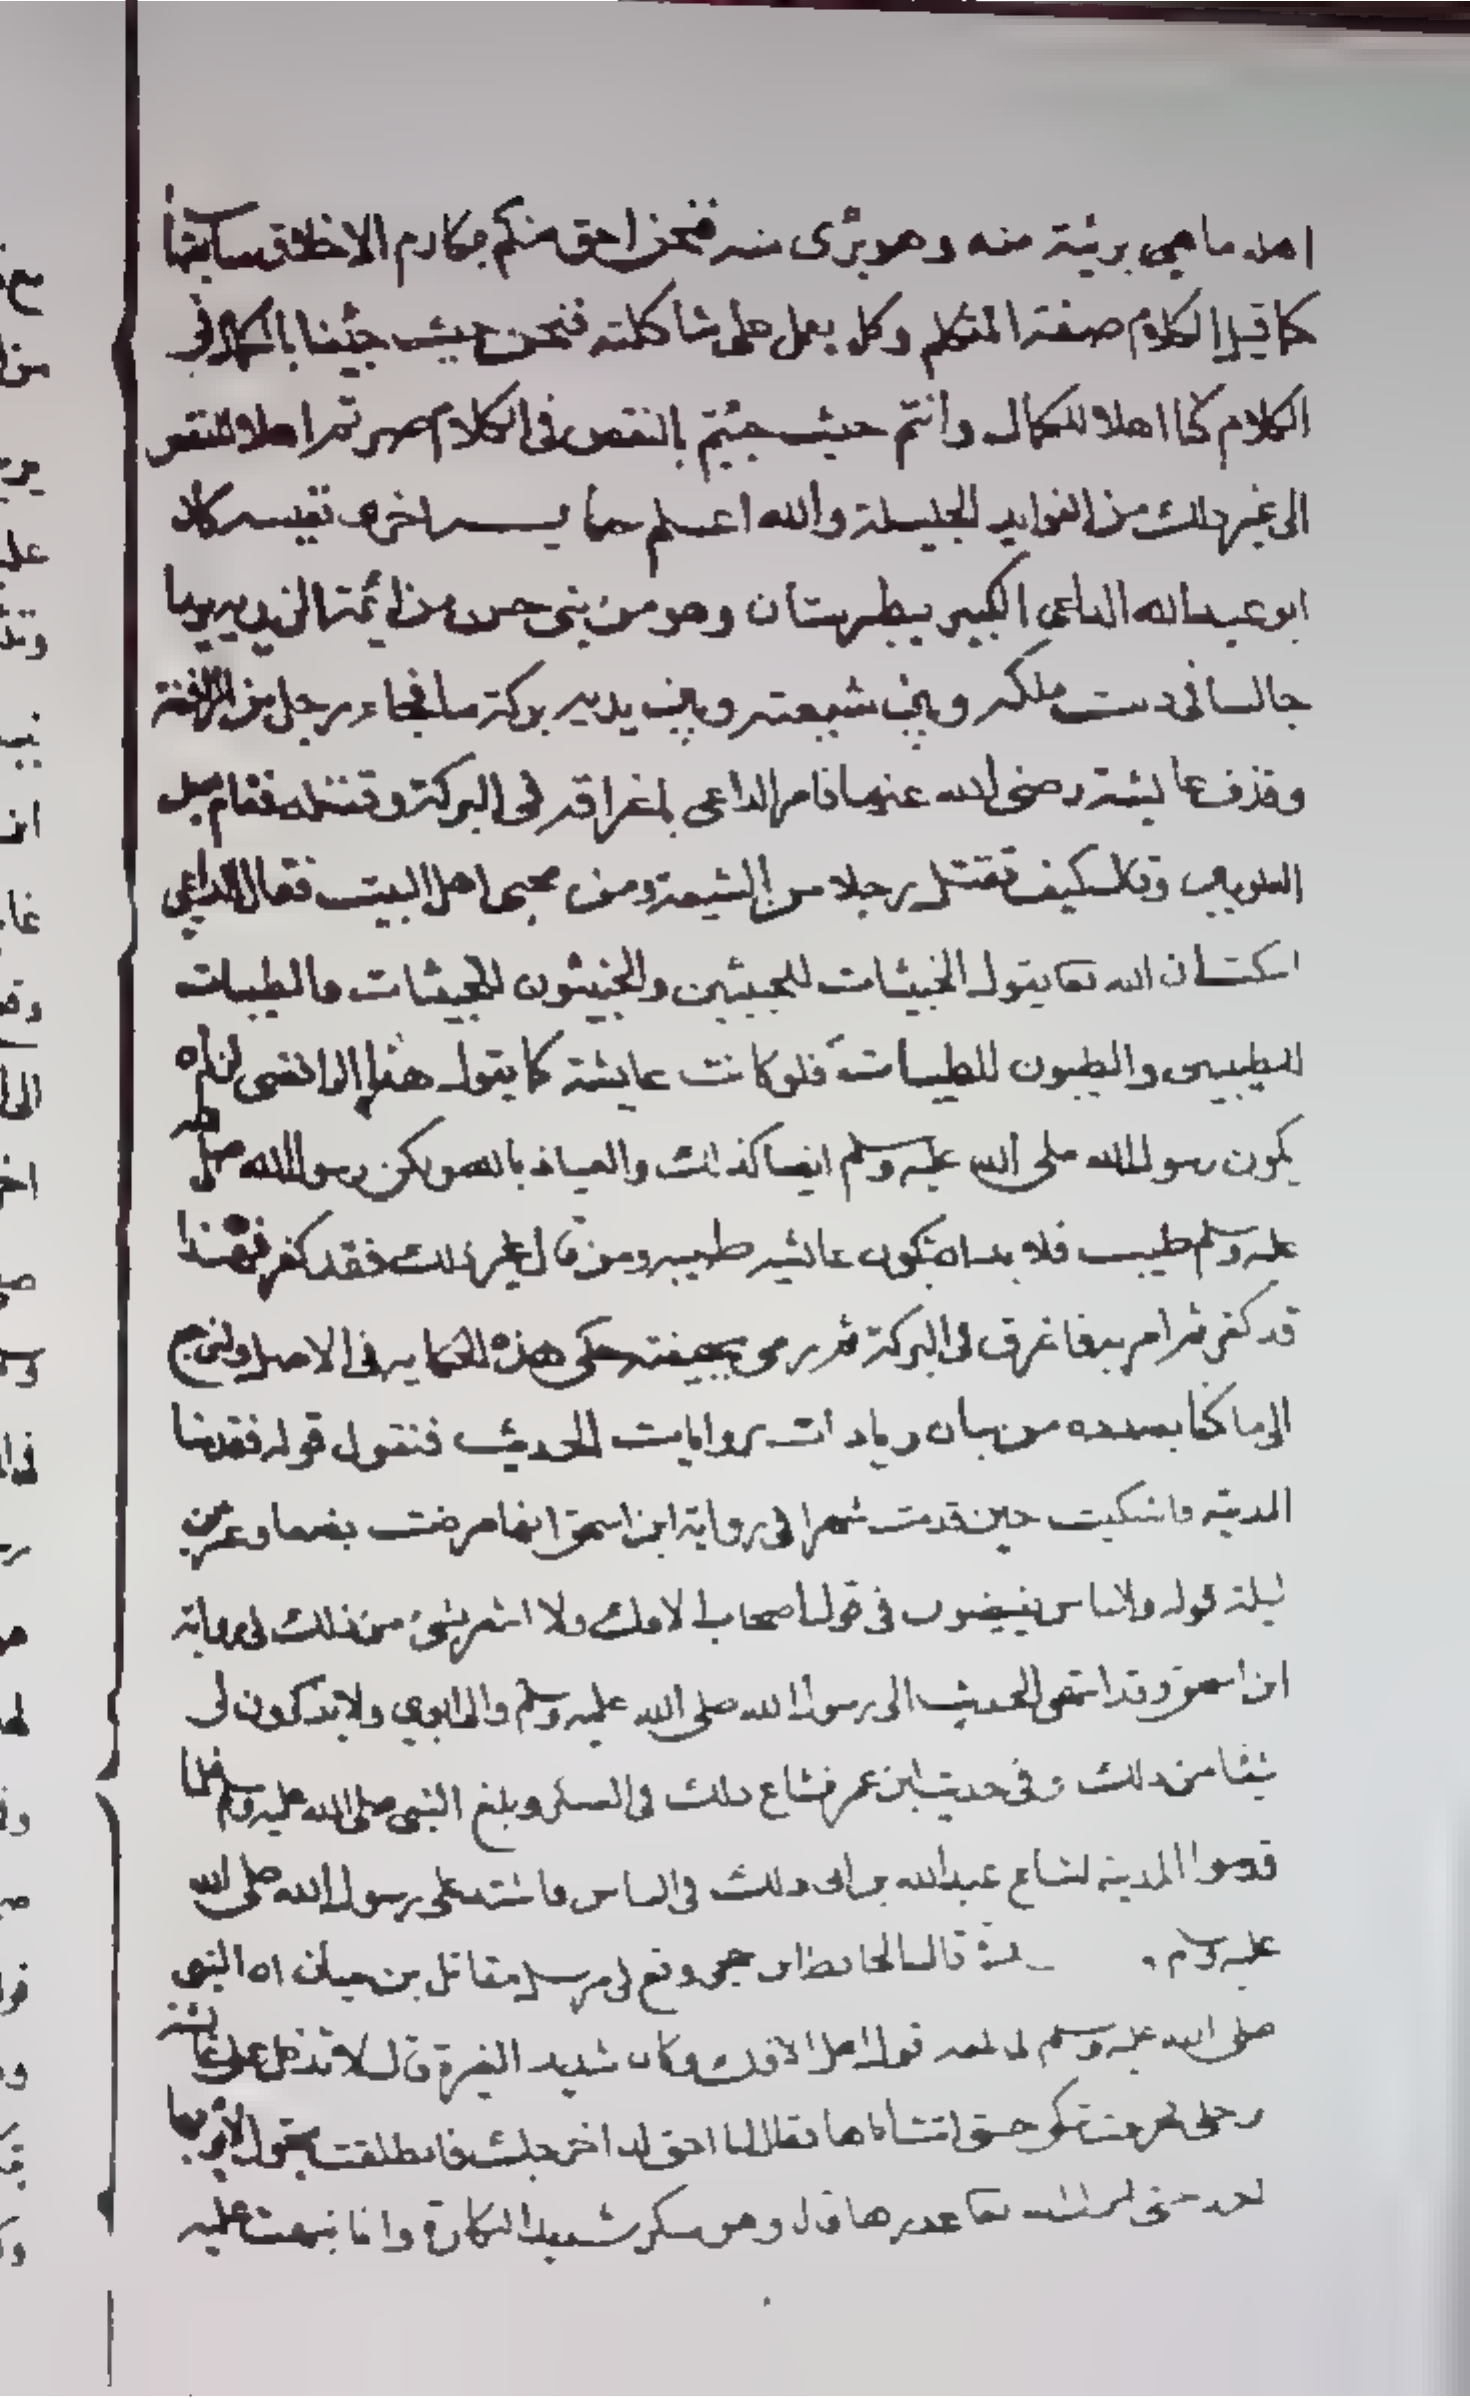 اهله ما هي بريئة منه وهو برئ منه فنحن احق منكم بمكارم الاخلاق
كما قيل الكلام صفة المتكلم وكل يعمل على شاكلته فنحن حيث جئنا بالكمال في
الكلام كنا اهلا للكمال وانتم حيث جيتم بالنقص في الكلام صرتم اهلا للنقص
الى غير ذلك من الفوايد الجليلة والله اعلم نفيسه كان
ابو عبد الله الداعي الكبير بطبرستان وهو من بني حسن من ائمة الزيديه يوما
جالسا في دست ملكه وبين شيعته وبين يديه بركة ما فجاء رجل من الرافضة
وقذف عايشة رضى الله عنها فامر الداعي باغراقه في البركة وقتله فقام بعض
العلويين وقال كيف تقتل رجلا من الشيعة ومن محبى اهل البيت فقال الداعي
اسكت ان الله تعا يقول الخبيثات للخبيثين والخبيثون للخبيثات والطيبات
للطيبين والطيبون للطيبات فلو كانت عايشة كما يقول هذا الرافضى لزم ان
يكون رسول الله صلى الله عليه وسلم ايضا كذلك والعياذ بالله ولكن رسول الله صلى الله
عليه وسلم طيب فلا بد ان تكون عائشه طيبه ومن قال غير ذلك فقد كفر فهذا
قد كفر ثم امر به فاغرق في البركة ثم رمى بجيفته حكى هذه الحكايه في الاصل ولنرجع
الى ما كنا بصدده من بيان زيادات روايات الحديث فنقول قوله فقدمنا
المدينه فاشتكيت حين قدمت شهرا في رواية ابن اسحق انها مرضت بضعا وعشرين
ليلة قوله والناس يفيضون في قول اصحاب الافك ولا اشعر بشئ من ذلك في رواية
ابن اسحق وقد انتهى الحديث الى رسول الله صلى الله عليه وسلم والى ابوي ولا يذكرون لي
شيئا من ذلك وفي حديث ابن عمر فشاع ذلك في العسكر وبلغ النبى صلى الله عليه وسلم فلما
قدموا المدينه اشاع عبد الله بن ابى ذلك في الناس فاشتد على رسول الله صلى الله
عليه وسلم قال الحافظ ابن حجر وقع في مرسل مقاتل بن حيان ان النبى
صلى الله عليه وسلم لما بلغه قول اهل الافك وكان شديد الغيرة قال لا تدخل على عائشة
رحلى فخرجت تبكى حتى اتت اباها فقال انا احق ان اخرجك فانطلقت تجول لا يؤويها
احد حتى انزل الله تعا عذرها قال وهو منكر شديد النكارة وانما نبهت عليه